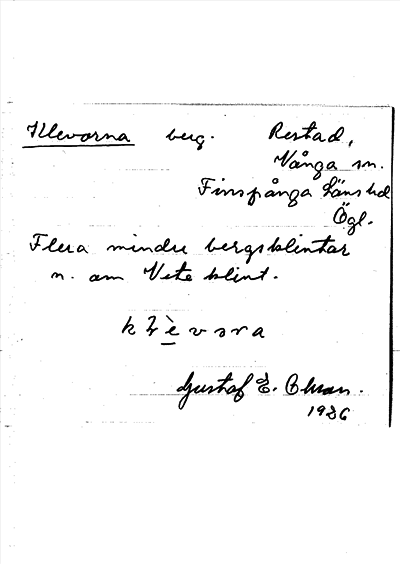 Klevorna berg. Restad,
Vånga sn.
Finspånga Länshd
Ögl.
Flera mindre bergsklintar
n. om Vete klint.
k l è v ɔ r a
Gustaf E. Ohman.
1926